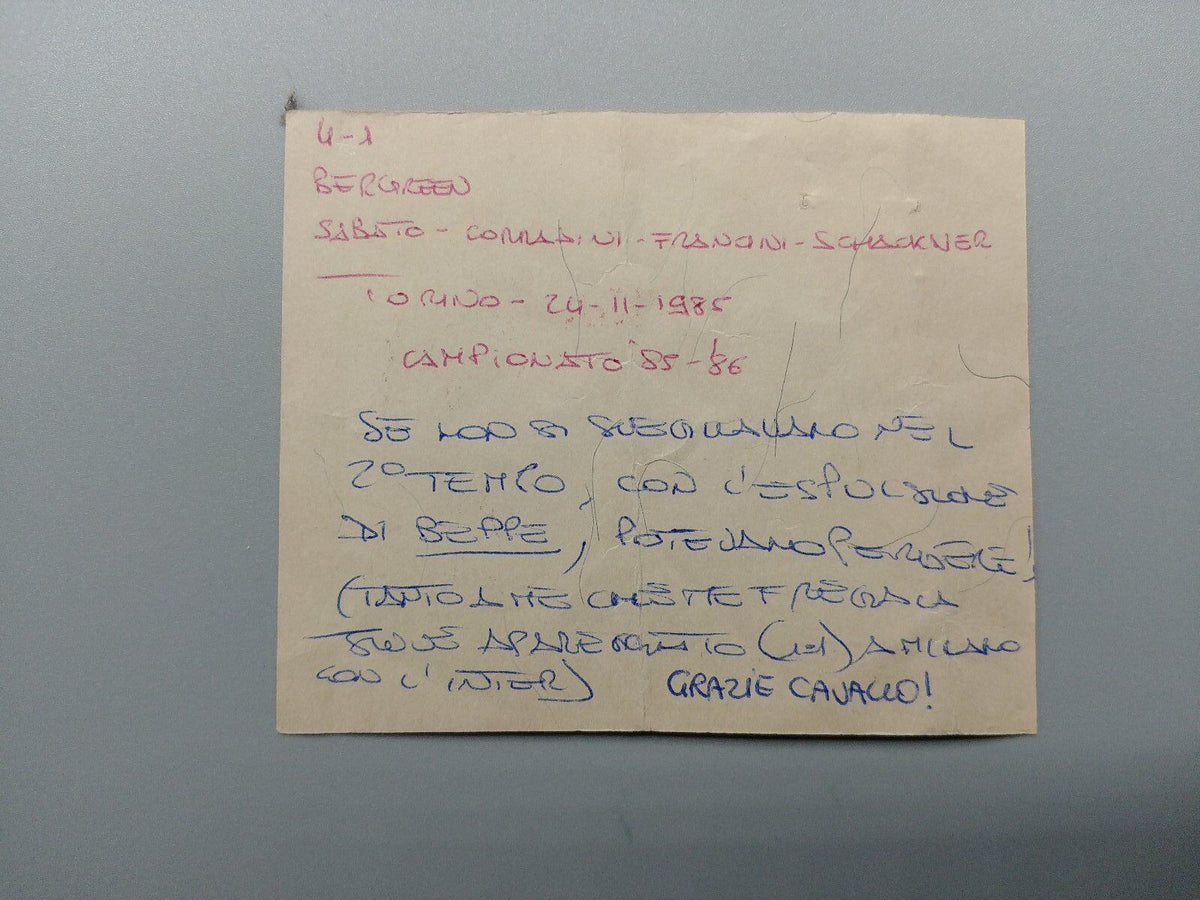 4-1
BERGREEN
SABATO - CORRADINI - FRANCINI - SCHACKNER
TORINO - 24-11-1985
CAMPIONATO '85-'86
SE NON SI SVEGLIAVANO NEL
2° TEMPO, CON L'ESPULSIONE
DI BEPPE, POTEVANO PERDERE!
(TANTO A ME CHE ME FREGA LA
JUVE A PAREGGIATO (1-1) A MILANO
CON L'INTER) GRAZIE CAVALLO!